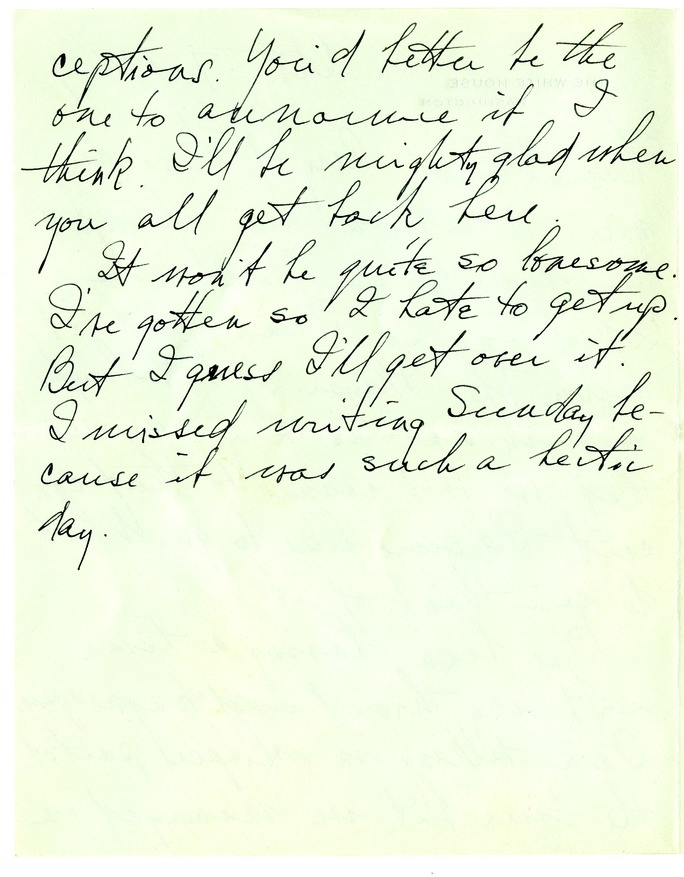 ceptions. You'd better be the
one to announce it I
think. I'll be mighty glad when
you all get back here.
It won't be quite so lonesome.
I've gotten so I hate to get up.
But I guess I'll get over it.
I missed writing Sunday be-
cause it was such a hectic
day.